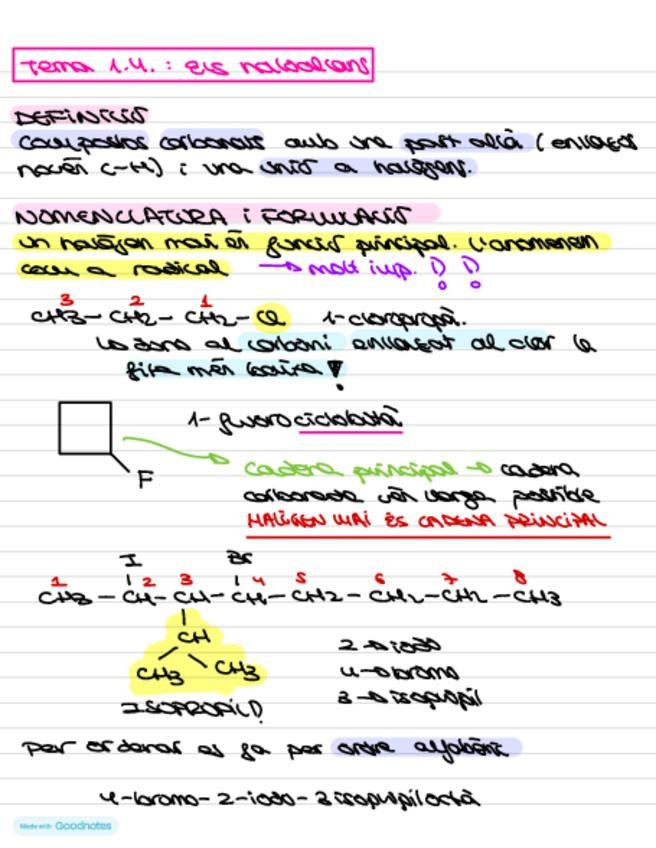 Tema 1.4. : Els haloalcans
DEFINICIÓ
Compostos carbonats amb una part alcà (enllaços
només C-H) i una unió a halògens.
NOMENCLATURA i FORMULACIÓ
Un halògen mai és funció principal. L'anomenem
com a radical → molt imp. !!
3 2 1
CH3 - CH2 - CH2 - Cl 1-cloropropà.
↳ dona al carboni enllaçat al clor la
xifra més baixa !
1-fluorociclobutà
F
cadena principal → cadena
carbonada més llarga possible
HALÒGEN MAI ÉS CADENA PRINCIPAL
I Br
1 2 3 4 5 6 7 8
CH3 - CH - CH - CH - CH2 - CH2 - CH2 - CH3
CH
CH3 CH3
ISOPROPIL!
2 → iodo
4 → bromo
3 → isopropil
Per ordenar es fa per ordre alfabètic
4-bromo-2-iodo-3 isopropiloctà
Made with Goodnotes